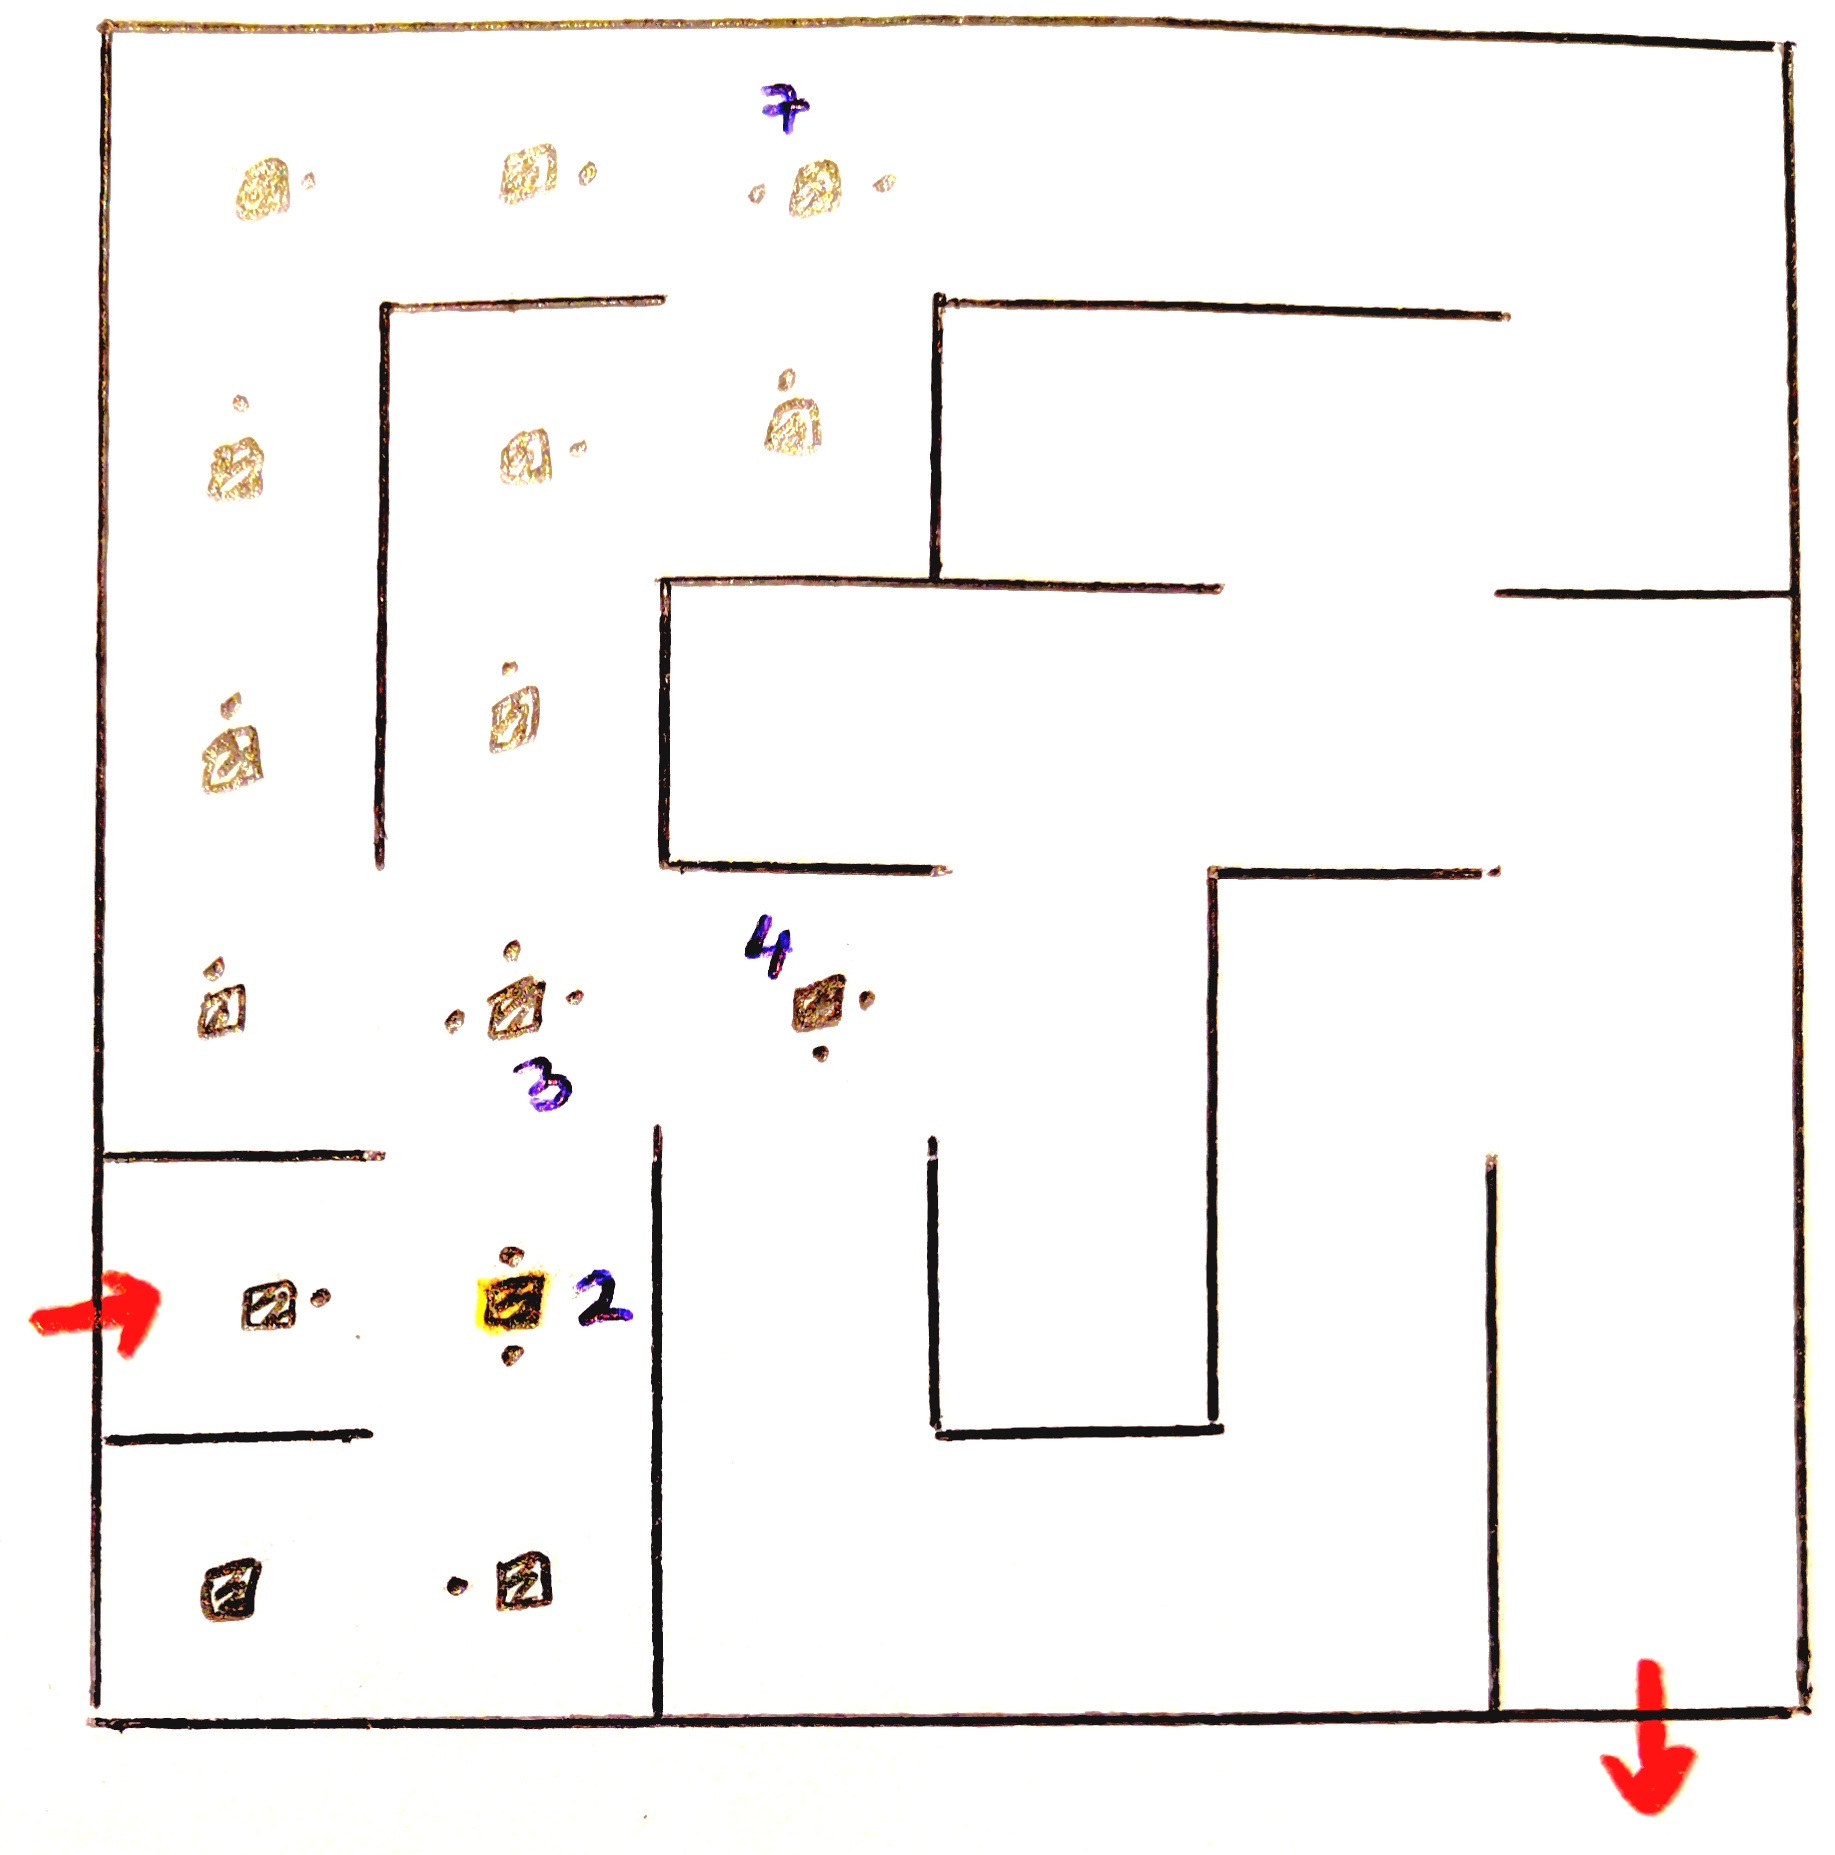 7
4
3
2